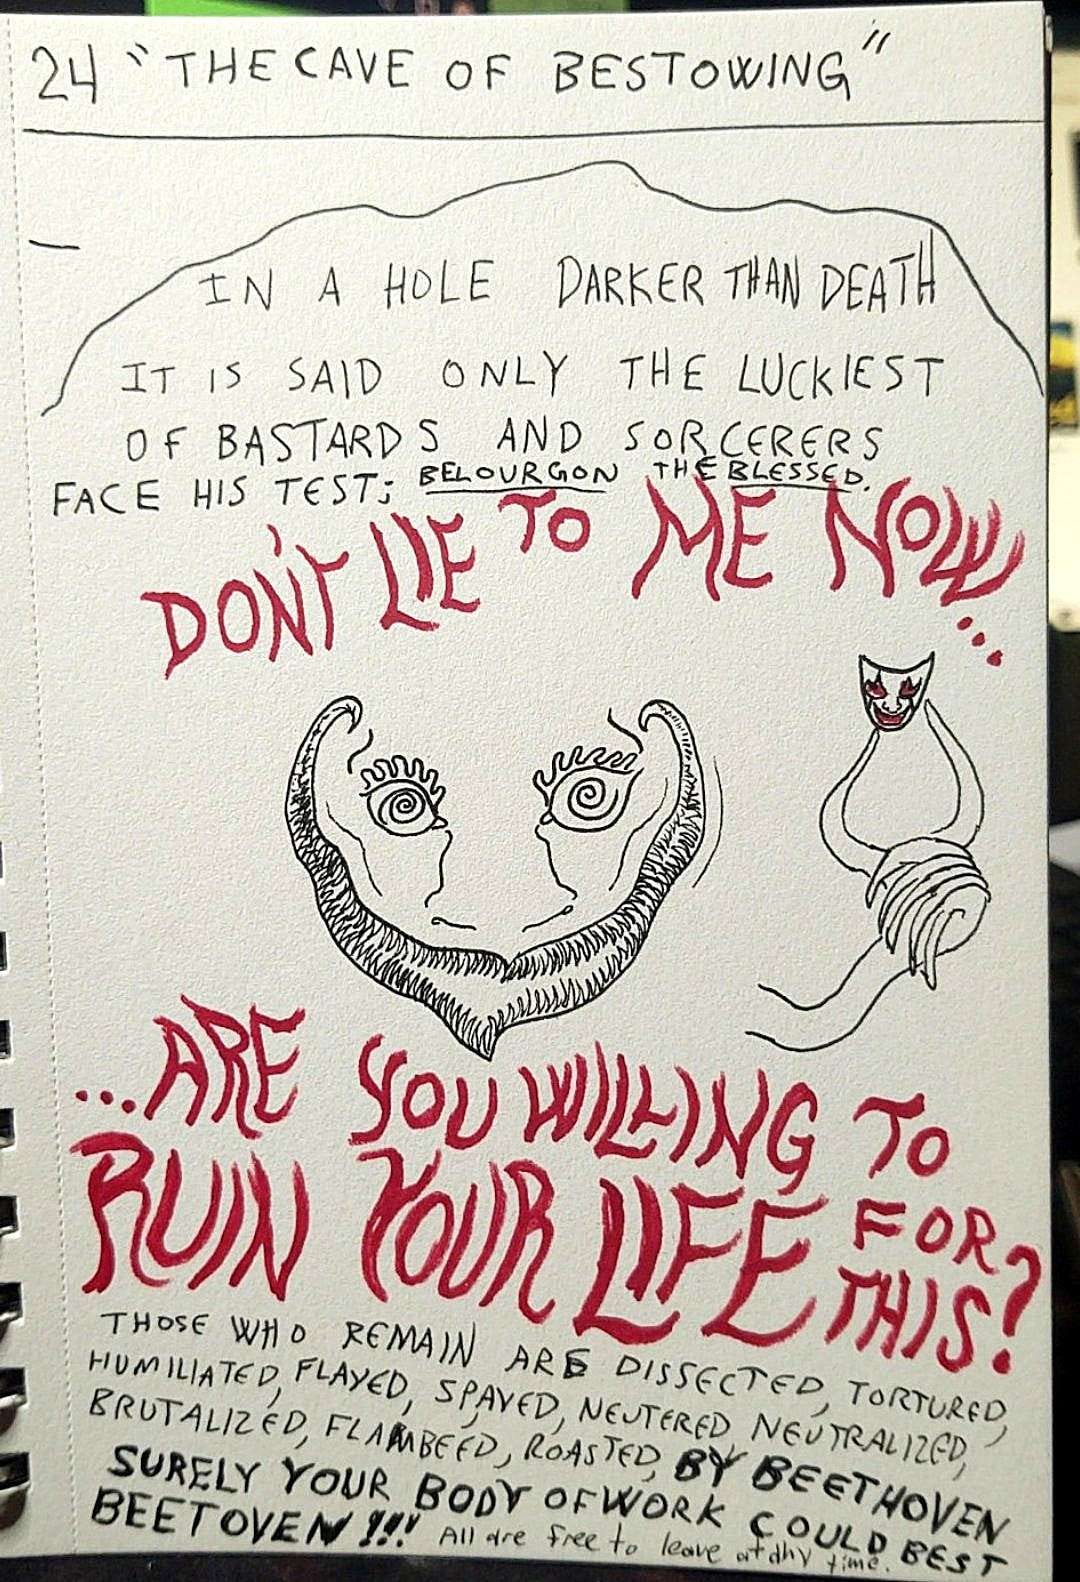 24 "THE CAVE OF BESTOWING"
IN A HOLE DARKER THAN DEATH
IT IS SAID ONLY THE LUCKIEST
OF BASTARDS AND SORCERERS
FACE HIS TEST; BELOURGON THE BLESSED.
DON'T LIE TO ME NOW...
...ARE YOU WILLING TO
RUIN YOUR LIFE FOR
THIS?
THOSE WHO REMAIN ARE DISSECTED, TORTURED,
HUMILIATED, FLAYED, SPAYED, NEUTERED NEUTRALIZED,
BRUTALIZED, FLAMBEED, ROASTED, BY BEETHOVEN
SURELY YOUR BODY OF WORK COULD BEST
BEETOVEN !!! All are free to leave at any time.